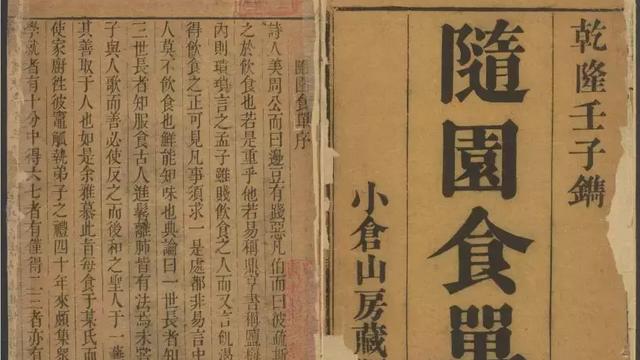 乾隆壬子鐫
隨園食單
小倉山房藏
隨園食單序
詩人美周公而曰籩豆有踐惡凡伯而曰彼疏斯
之於飲食也若是重乎他若易稱鼎亨書稱鹽梅
內則瑣瑣言之孟子雖賤飲食之人而又言飢渴
得飲食之正可見凡事須求一是處都非易言中
人莫不飲食也鮮能知味也典論曰一世長者知
三世長者知服食古人進鬐離肺皆有法焉未嘗
子與人歌而善必使反之而後和之聖人于一藝
其善取于人也如是余雅慕此旨每食于某氏而
使家廚往彼竈觚執弟子之禮四十年來頗集衆
學就者有十分中得六七者有僅得二三者亦有